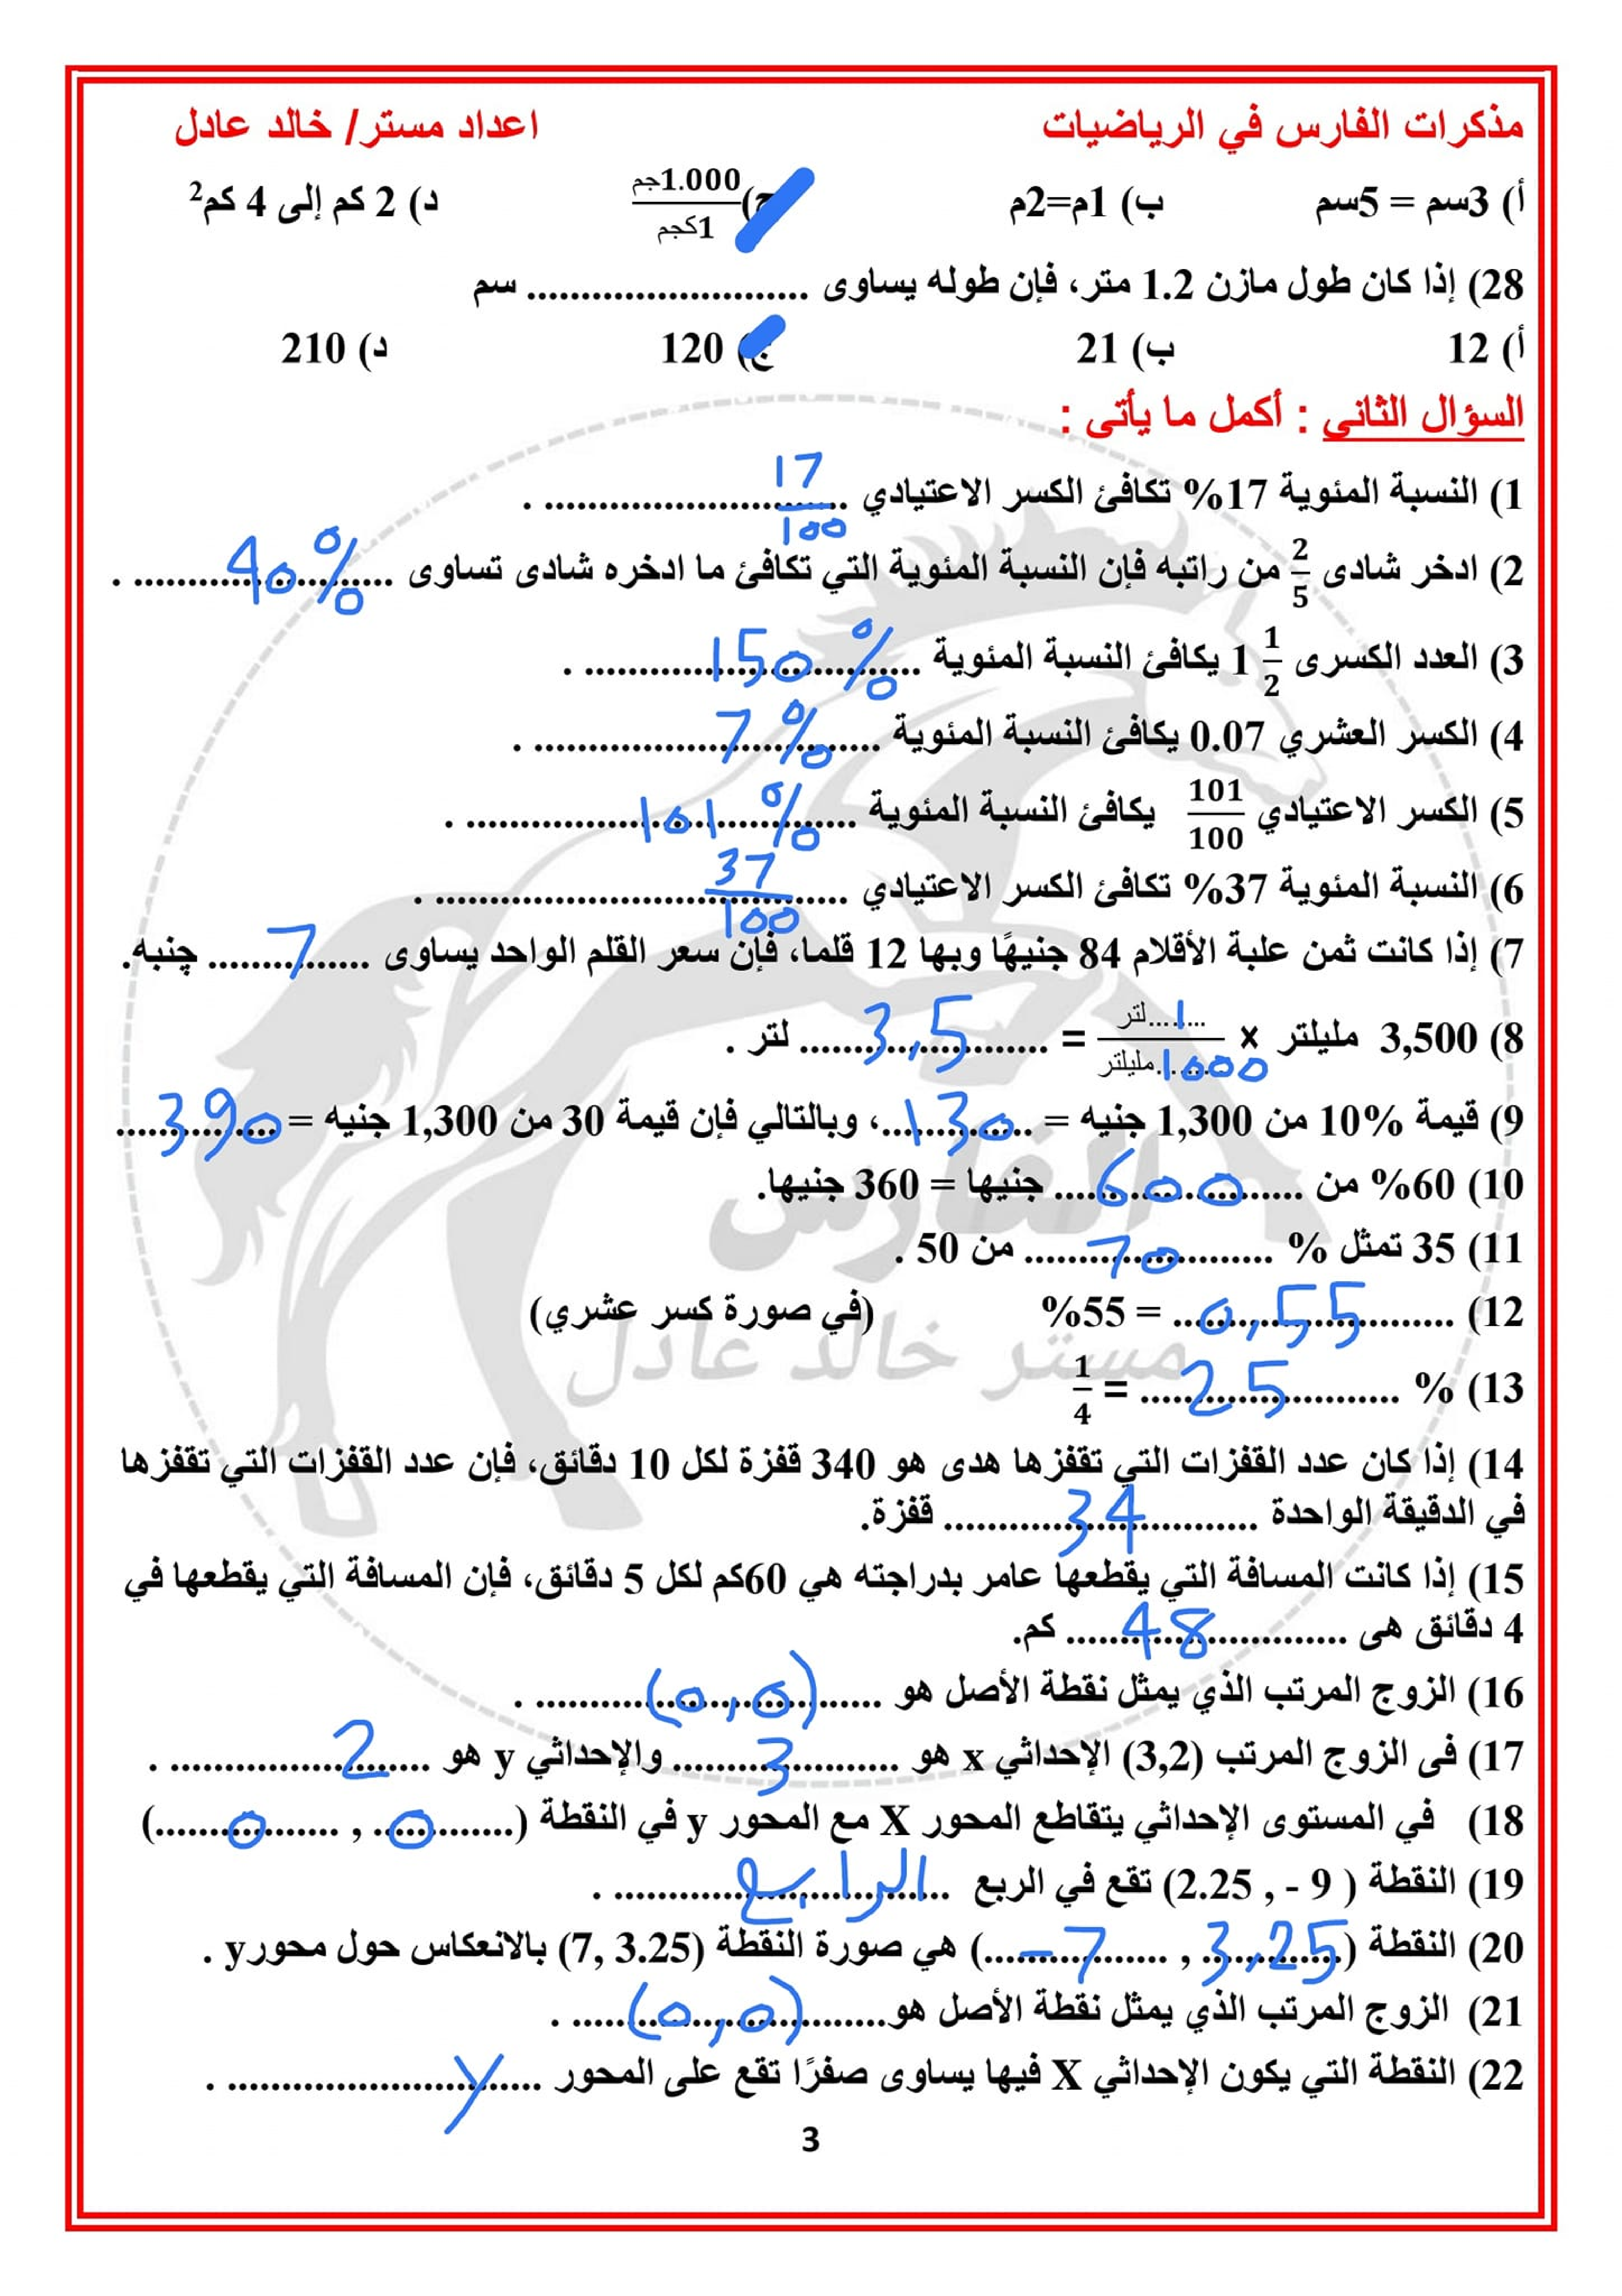 مذكرات الفارس في الرياضيات اعداد مستر/ خالد عادل
أ) 3سم = 5سم ب) 1م=2م ج) 1.000جم/1كجم د) 2 كم إلى 4 كم²
28) إذا كان طول مازن 1.2 متر، فإن طوله يساوى .......................... سم
أ) 12 ب) 21 ج) 120 د) 210
السؤال الثاني : أكمل ما يأتى :
1) النسبة المئوية 17% تكافئ الكسر الاعتيادي 17/100 .
2) ادخر شادى 2/5 من راتبه فإن النسبة المئوية التي تكافئ ما ادخره شادى تساوى 40% .
3) العدد الكسرى 1 1/2 يكافئ النسبة المئوية 150% .
4) الكسر العشري 0.07 يكافئ النسبة المئوية 7% .
5) الكسر الاعتيادي 101/100 يكافئ النسبة المئوية 101% .
6) النسبة المئوية 37% تكافئ الكسر الاعتيادي 37/100 .
7) إذا كانت ثمن علبة الأقلام 84 جنيهًا وبها 12 قلما، فإن سعر القلم الواحد يساوى 7 جنيه.
8) 3,500 ملیلتر × 1 لتر/1000 مليلتر = 3,5 لتر .
9) قيمة 10% من 1,300 جنيه = 130، وبالتالي فإن قيمة 30 من 1,300 جنيه = 390
10) 60% من 600 جنيها = 360 جنيها.
11) 35 تمثل % 70 من 50 .
12) 0,55 = 55% (في صورة كسر عشري)
13) % 25 = 1/4
14) إذا كان عدد القفزات التي تقفزها هدى هو 340 قفزة لكل 10 دقائق، فإن عدد القفزات التي تقفزها
في الدقيقة الواحدة 34 قفزة.
15) إذا كانت المسافة التي يقطعها عامر بدراجته هي 60كم لكل 5 دقائق، فإن المسافة التي يقطعها في
4 دقائق هى 48 كم.
16) الزوج المرتب الذي يمثل نقطة الأصل هو (0,0) .
17) فى الزوج المرتب (3,2) الإحداثي x هو 3 والإحداثي y هو 2 .
18) في المستوى الإحداثي يتقاطع المحور X مع المحور y في النقطة (0 , 0)
19) النقطة ( 9 - , 2.25) تقع في الربع الرابع .
20) النقطة (3,25 , -7) هي صورة النقطة (7, 3.25) بالانعكاس حول محور y .
21) الزوج المرتب الذي يمثل نقطة الأصل هو (0,0) .
22) النقطة التي يكون الإحداثي X فيها يساوى صفرًا تقع على المحور y .
3
الفارس
مستر خالد عادل